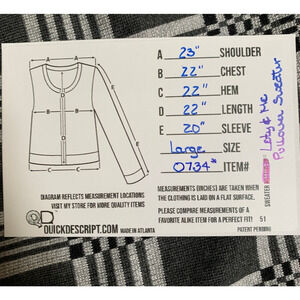 A 23" SHOULDER
B 22" CHEST
C 22" HEM
D 22" LENGTH
E 20" SLEEVE
Large SIZE
0734* ITEM#
A
B
C
D
E
DIAGRAM REFLECTS MEASUREMENT LOCATIONS
VISIT MY STORE FOR MORE QUALITY ITEMS
QUICKDESCRIPT.COM MADE IN ATLANTA
MEASUREMENTS (INCHES) ARE TAKEN WHEN
THE CLOTHING IS LAID ON A FLAT SURFACE.
PLEASE COMPARE MEASUREMENTS OF A
FAVORITE ALIKE ITEM FOR A PERFECT FIT!
51
PATENT PENDING
SWEATER
Pullover Sweater